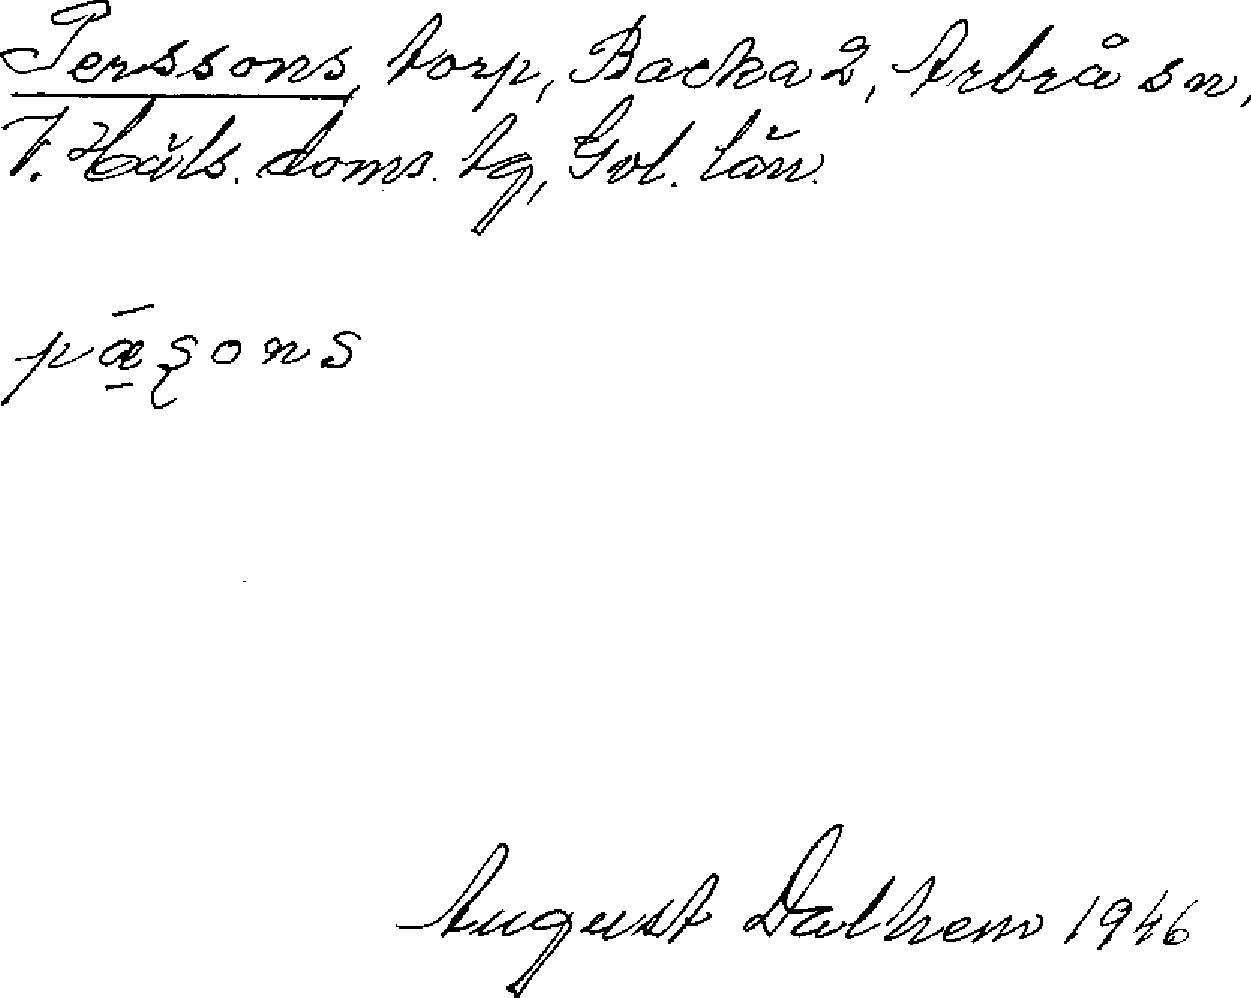 Perssons, torp, Backa 2, Arbrå sn,
V. Häls. doms. tg, Gvl. län.
pǣ̠şons
August Dalhem 1946